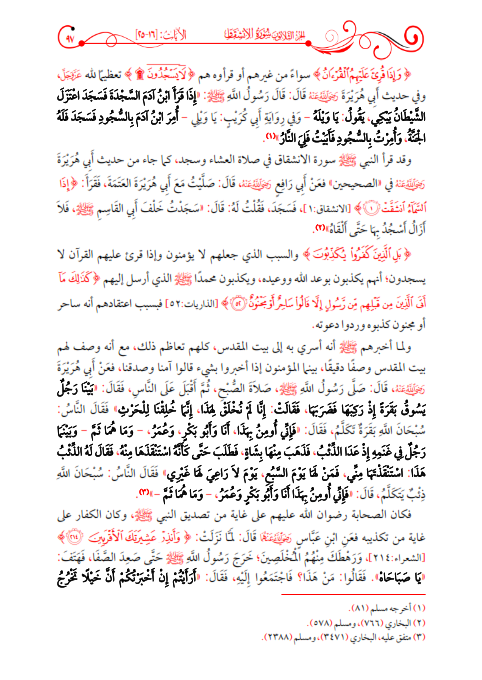 الجزء الثلاثون سُورَةُ الانْشِقَاق
الآيات: [١٦-٢٥]
٩٧
﴿ وَإِذَا قُرِئَ عَلَيْهِمُ الْقُرْءَانُ ﴾ سواءً من غيرهم أو قرأوه هم ﴿ لَا يَسْجُدُونَ ۩ ﴾ تعظيمًا لله عَزَّوَجَلَّ،
وفي حديث أَبِي هُرَيْرَةَ رَضِيَ اللَّهُ عَنْهُ قَالَ: قَالَ رَسُولُ اللَّهِ ﷺ: «إِذَا قَرَأَ ابْنُ آدَمَ السَّجْدَةَ فَسَجَدَ اعْتَزَلَ
الشَّيْطَانُ يَبْكِي، يَقُولُ: يَا وَيْلَهُ – وَفِي رِوَايَةِ أَبِي كُرَيْبٍ: يَا وَيْلِي – أُمِرَ ابْنُ آدَمَ بِالسُّجُودِ فَسَجَدَ فَلَهُ
الْجَنَّةُ، وَأُمِرْتُ بِالسُّجُودِ فَأَبَيْتُ فَلِيَ النَّارُ»(١).
وقد قرأ النبي ﷺ سورة الانشقاق في صلاة العشاء وسجد، كما جاء من حديث أَبِي هُرَيْرَةَ
رَضِيَ اللَّهُ عَنْهُ في «الصحيحين» فعَنْ أَبِي رَافِعٍ رَضِيَ اللَّهُ عَنْهُ، قَالَ: صَلَّيْتُ مَعَ أَبِي هُرَيْرَةَ العَتَمَةَ، فَقَرَأَ: ﴿ إِذَا
السَّمَآءُ انشَقَّتْ ۝١ ﴾ [الانشقاق:١]، فَسَجَدَ، فَقُلْتُ لَهُ: قَالَ: «سَجَدْتُ خَلْفَ أَبِي القَاسِمِ ﷺ، فَلاَ
أَزَالُ أَسْجُدُ بِهَا حَتَّى أَلْقَاهُ»(٢).
﴿ بَلِ الَّذِينَ كَفَرُوا يُكَذِّبُونَ ﴾ والسبب الذي جعلهم لا يؤمنون وإذا قرئ عليهم القرآن لا
يسجدون؛ أنهم يكذبون بوعد الله ووعيده، ويكذبون محمدًا ﷺ الذي أرسل إليهم ﴿ كَذَٰلِكَ مَآ
أَتَى الَّذِينَ مِن قَبْلِهِم مِّن رَّسُولٍ إِلَّا قَالُوا سَاحِرٌ أَوْ مَجْنُونٌ ۝٥٢ ﴾ [الذاريات:٥٢] فبسبب اعتقادهم أنه ساحر
أو مجنون كذبوه وردوا دعوته.
ولما أخبرهم ﷺ أنه أسري به إلى بيت المقدس، كلهم تعاظم ذلك، مع أنه وصف لهم
بيت المقدس وصفًا دقيقًا، بينما المؤمنون إذا أخبروا بشيء قالوا آمنا وصدقنا، فعَنْ أَبِي هُرَيْرَةَ
رَضِيَ اللَّهُ عَنْهُ، قَالَ: صَلَّى رَسُولُ اللَّهِ ﷺ، صَلاَةَ الصُّبْحِ، ثُمَّ أَقْبَلَ عَلَى النَّاسِ، فَقَالَ: «بَيْنَا رَجُلٌ
يَسُوقُ بَقَرَةً إِذْ رَكِبَهَا فَضَرَبَهَا، فَقَالَتْ: إِنَّا لَمْ نُخْلَقْ لِهَذَا، إِنَّمَا خُلِقْنَا لِلْحَرْثِ» فَقَالَ النَّاسُ:
سُبْحَانَ اللَّهِ بَقَرَةٌ تَكَلَّمُ، فَقَالَ: «فَإِنِّي أُومِنُ بِهَذَا، أَنَا، وَأَبُو بَكْرٍ، وَعُمَرُ، – وَمَا هُمَا ثَمَّ – وَبَيْنَمَا
رَجُلٌ فِي غَنَمِهِ إِذْ عَدَا الذِّئْبُ، فَذَهَبَ مِنْهَا بِشَاةٍ، فَطَلَبَ حَتَّى كَأَنَّهُ اسْتَنْقَذَهَا مِنْهُ، فَقَالَ لَهُ الذِّئْبُ
هَذَا: اسْتَنْقَذْتَهَا مِنِّي، فَمَنْ لَهَا يَوْمَ السَّبُعِ، يَوْمَ لاَ رَاعِيَ لَهَا غَيْرِي» فَقَالَ النَّاسُ: سُبْحَانَ اللَّهِ
ذِئْبٌ يَتَكَلَّمُ، قَالَ: «فَإِنِّي أُومِنُ بِهَذَا أَنَا وَأَبُو بَكْرٍ وَعُمَرُ، – وَمَا هُمَا ثَمَّ –»(٣).
فكان الصحابة رضوان الله عليهم على غاية من تصديق النبي ﷺ، وكان الكفار على
غاية من تكذيبه فعَنِ ابْنِ عَبَّاسٍ رَضِيَ اللَّهُ عَنْهُمَا قَالَ: لَمَّا نَزَلَتْ: ﴿ وَأَنذِرْ عَشِيرَتَكَ الْأَقْرَبِينَ ۝٢١٤ ﴾
[الشعراء:٢١٤]، وَرَهْطَكَ مِنْهُمُ الْمُخْلَصِينَ؛ خَرَجَ رَسُولُ اللَّهِ ﷺ حَتَّى صَعِدَ الصَّفَا، فَهَتَفَ:
«يَا صَبَاحَاهْ». فَقَالُوا: مَنْ هَذَا؟ فَاجْتَمَعُوا إِلَيْهِ، فَقَالَ: «أَرَأَيْتُمْ إِنْ أَخْبَرْتُكُمْ أَنَّ خَيْلًا تَخْرُجُ
(١) أخرجه مسلم (٨١).
(٢) البخاري (٧٦٦)، ومسلم (٥٧٨).
(٣) متفق عليه، البخاري (٣٤٧١)، ومسلم (٢٣٨٨).